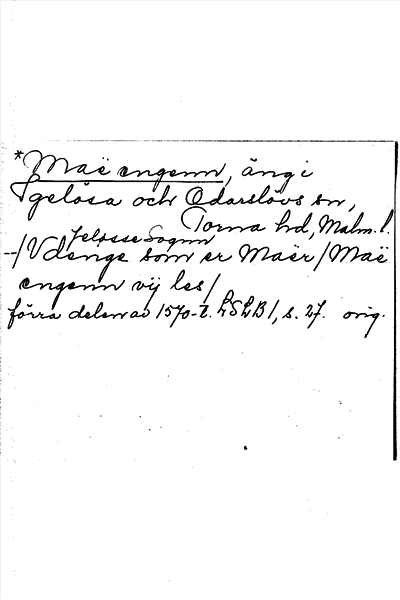 *Maë engenn, äng i
Igelösa och Odarslövs sn,
Torna hd, Malm. l.
Jelösse Sognn
-/Vdenge som er Maër/Maë
engenn vij les/
förra delen av 1570-t. LSLB I, s. 27. orig.